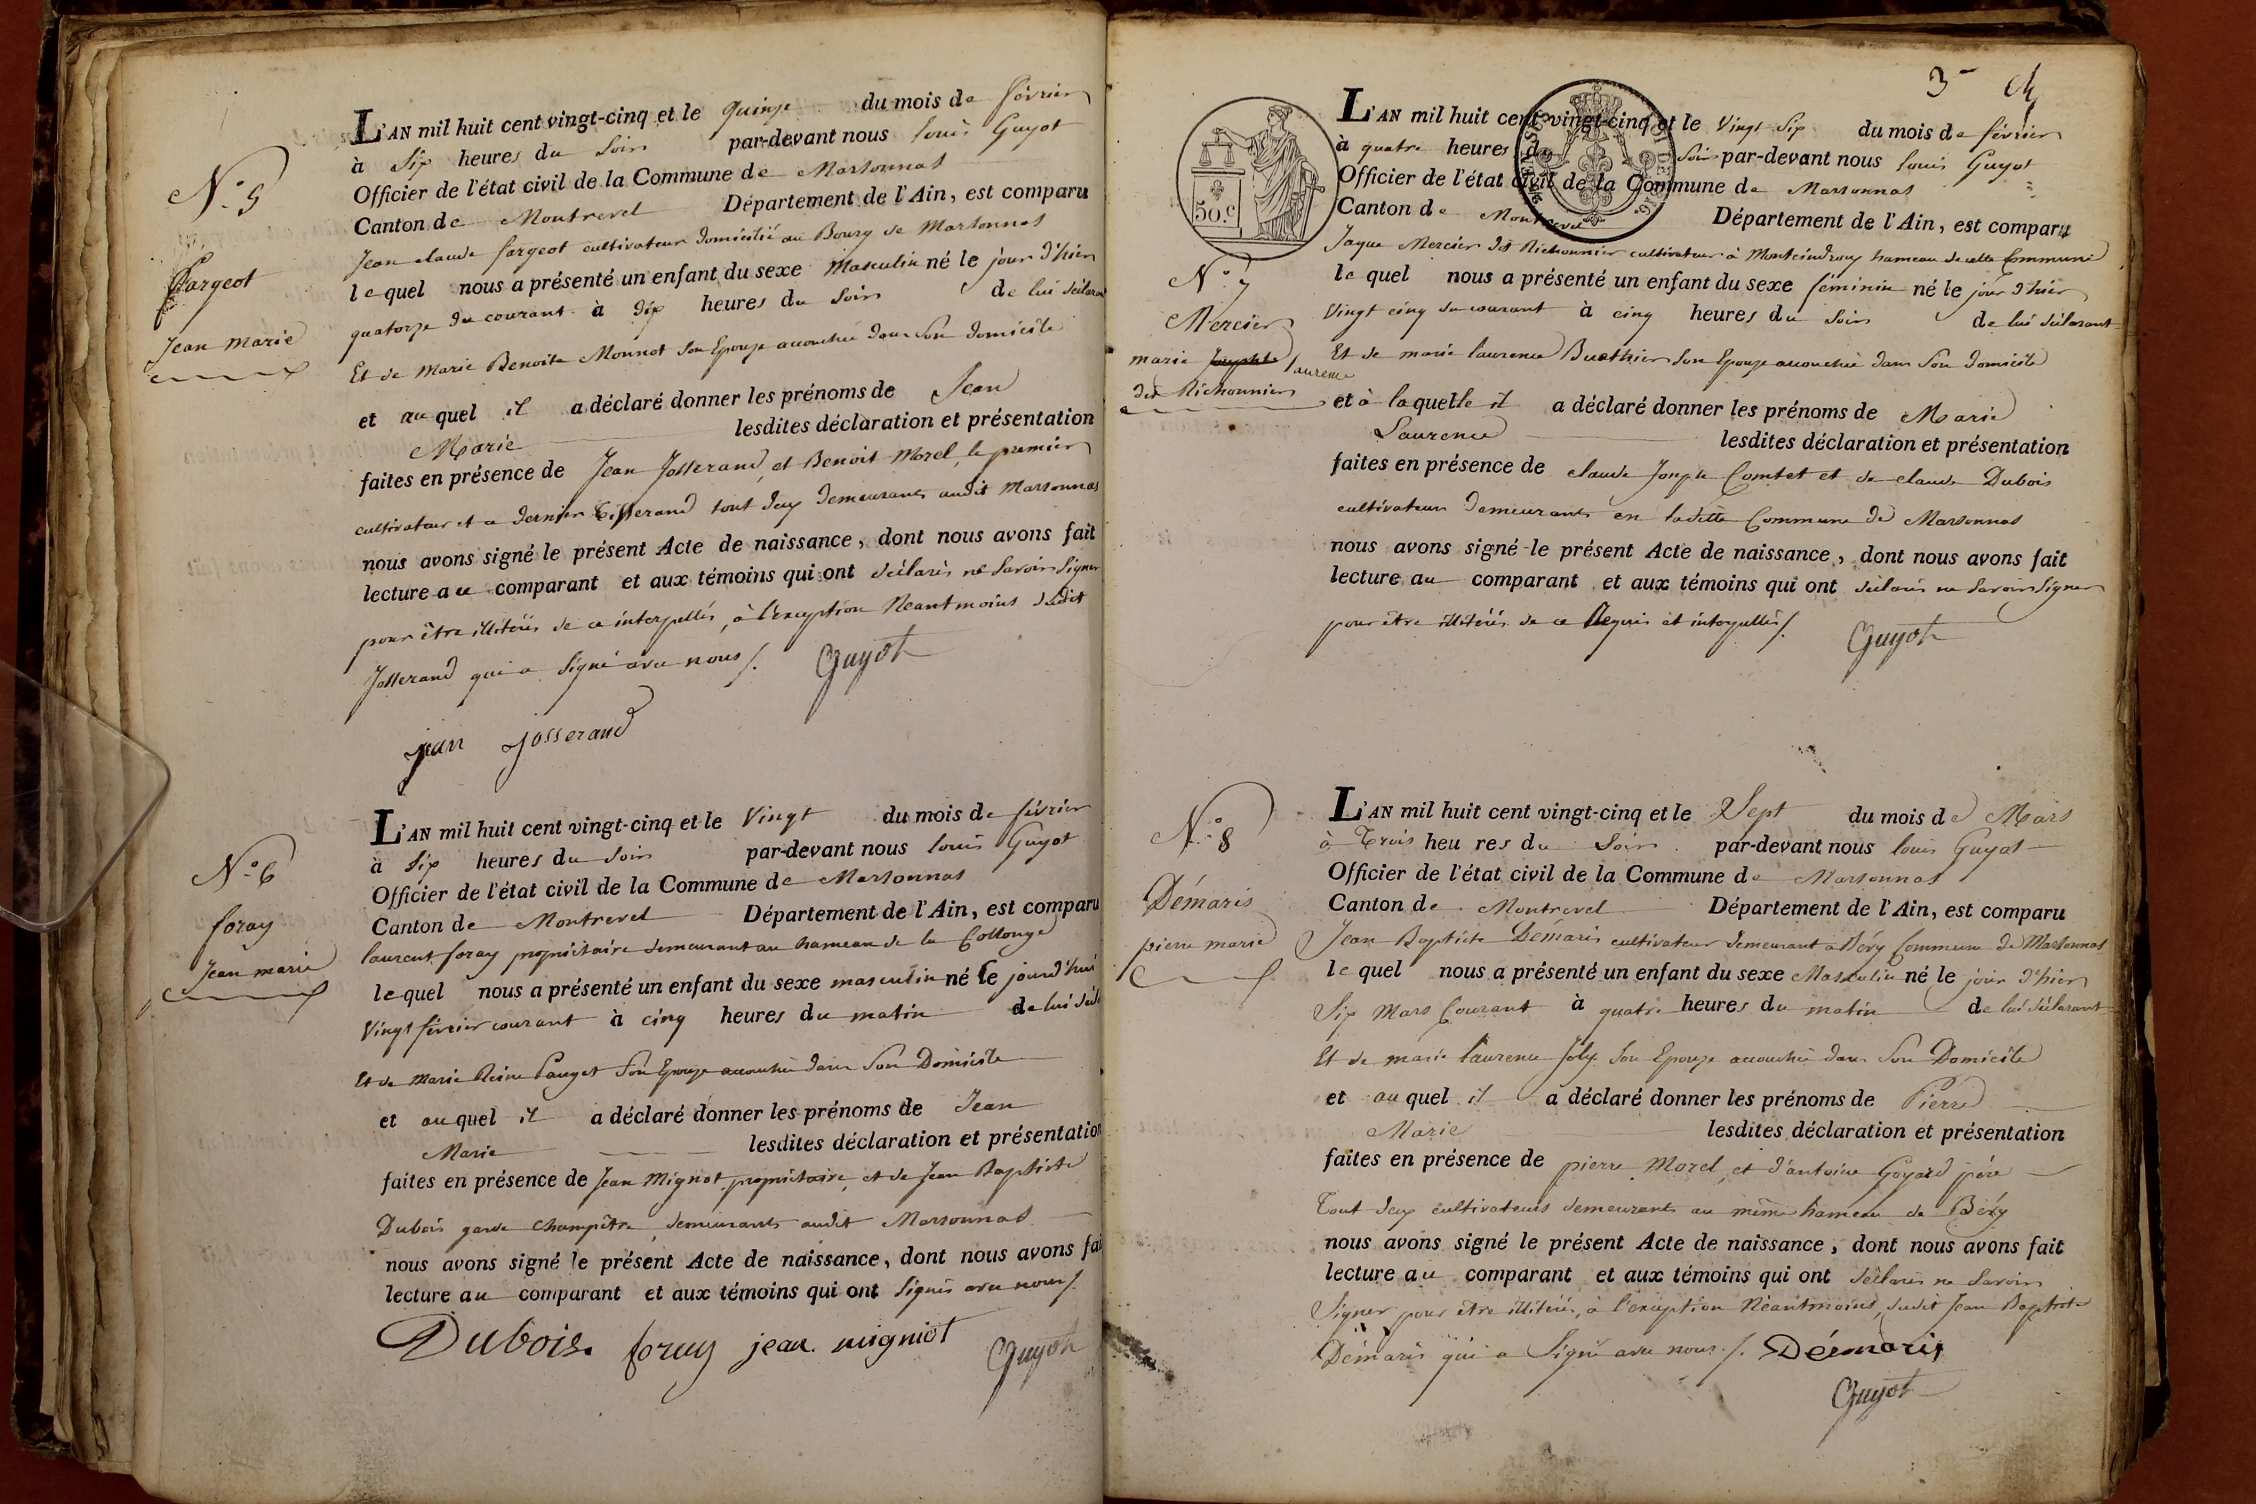 N.° 5
Fargeot
Jean marie
L'AN mil huit cent vingt-cinq et le quinze du mois de février
à Six heures du Soir par-devant nous louis Guyot
Officier de l'état civil de la Commune de Marsonnas
Canton de Montrevel Département de l'Ain, est comparu
Jean claude fargeot cultivateur domicilié au Bourg de Marsonnas
le quel nous a présenté un enfant du sexe Masculin né le jour d'hier
quatorze du courant à dix heures du Soir de lui déclarant
Et de Marie Benoite Monnot Son Epouze accouchée dans Son domicile
et au quel il a déclaré donner les prénoms de Jean
Marie lesdites déclaration et présentation
faites en présence de Jean Josserand, et Benoit Morel, le premier
cultivateur et a dernier Tisserand tout deux demeurants audit Marsonnas
nous avons signé le présent Acte de naissance, dont nous avons fait
lecture au comparant et aux témoins qui ont déclarés ne Savoir Signer
pour être illitérés de ce interpellés, à l'exception Néantmoins dudit
Josserand qui a Signé avec nous /. Guyot
jean josserand
N.° 6
foray
Jean marie
L'AN mil huit cent vingt-cinq et le Vingt du mois de février
à Six heures du Soir par-devant nous louis Guyot
Officier de l'état civil de la Commune de Marsonnas
Canton de Montrevel Département de l'Ain, est comparu
laurent foray propriétaire demeurant au hameau de la Collonge
le quel nous a présenté un enfant du sexe masculin né le jourd'hui
Vingt février courant à cinq heures du matin de lui décla
Et de Marie Reine Pauget Son Epouze accouchée dans Son Domicile
et au quel il a déclaré donner les prénoms de Jean
Marie lesdites déclaration et présentation
faites en présence de Jean Mignot propriétaire, et de Jean Baptiste
Dubois garde champêtre, demeurants audit Marsonnas
nous avons signé le présent Acte de naissance, dont nous avons fai
lecture au comparant et aux témoins qui ont Signés avec nous /.
Dubois. foray jean migniot Guyot
3
50.c
N.° 7
Mercier
marie Laurence
dit Richonnier
L'AN mil huit cent vingt-cinq et le Vingt Six du mois de février
à quatre heures du Soir par-devant nous louis Guyot
Officier de l'état civil de la Commune de Marsonnas
Canton de Montrevel Département de l'Ain, est comparu
Jaque Mercier dit Richonnier cultivateur à Montcindroux hameau de cette Commune
le quel nous a présenté un enfant du sexe féminin né le jour d'hier
Vingt cinq du courant à cinq heures du Soir de lui déclarant
Et de marie laurence Buathier Son Epouze accouchée dans Son domicile
et à laquelle il a déclaré donner les prénoms de Marie
Laurence lesdites déclaration et présentation
faites en présence de claude Joseph Comtet et de claude Dubois
cultivateurs demeurants en ladite Commune de Marsonnas
nous avons signé le présent Acte de naissance, dont nous avons fait
lecture au comparant et aux témoins qui ont déclarés ne Savoir Signer
pour être illitérés de ce Requis et interpellés /. Guyot
N.° 8
Démaris
pierre marie
L'AN mil huit cent vingt-cinq et le Sept du mois de Mars
à Trois heures du Soir par-devant nous louis Guyot
Officier de l'état civil de la Commune de Marsonnas
Canton de Montrevel Département de l'Ain, est comparu
Jean Baptiste Démaris cultivateur demeurant à Béry Commune de Marsonnas
le quel nous a présenté un enfant du sexe Masculin né le jour d'hier
Six Mars Courant à quatre heures du matin de lui déclarant
Et de marie laurence Joly Son Epouze accouchée dans Son Domicile
et au quel il a déclaré donner les prénoms de Pierre
Marie lesdites déclaration et présentation
faites en présence de pierre Morel, et d'antoine Goyard père
Tout deux cultivateurs demeurants au même hameau de Béry
nous avons signé le présent Acte de naissance, dont nous avons fait
lecture au comparant et aux témoins qui ont déclarés ne Savoir
Signer pour être illitérés, à l'exception Néantmoins dudit Jean Baptiste
Démaris qui a Signé avec nous /. Démaris
Guyot